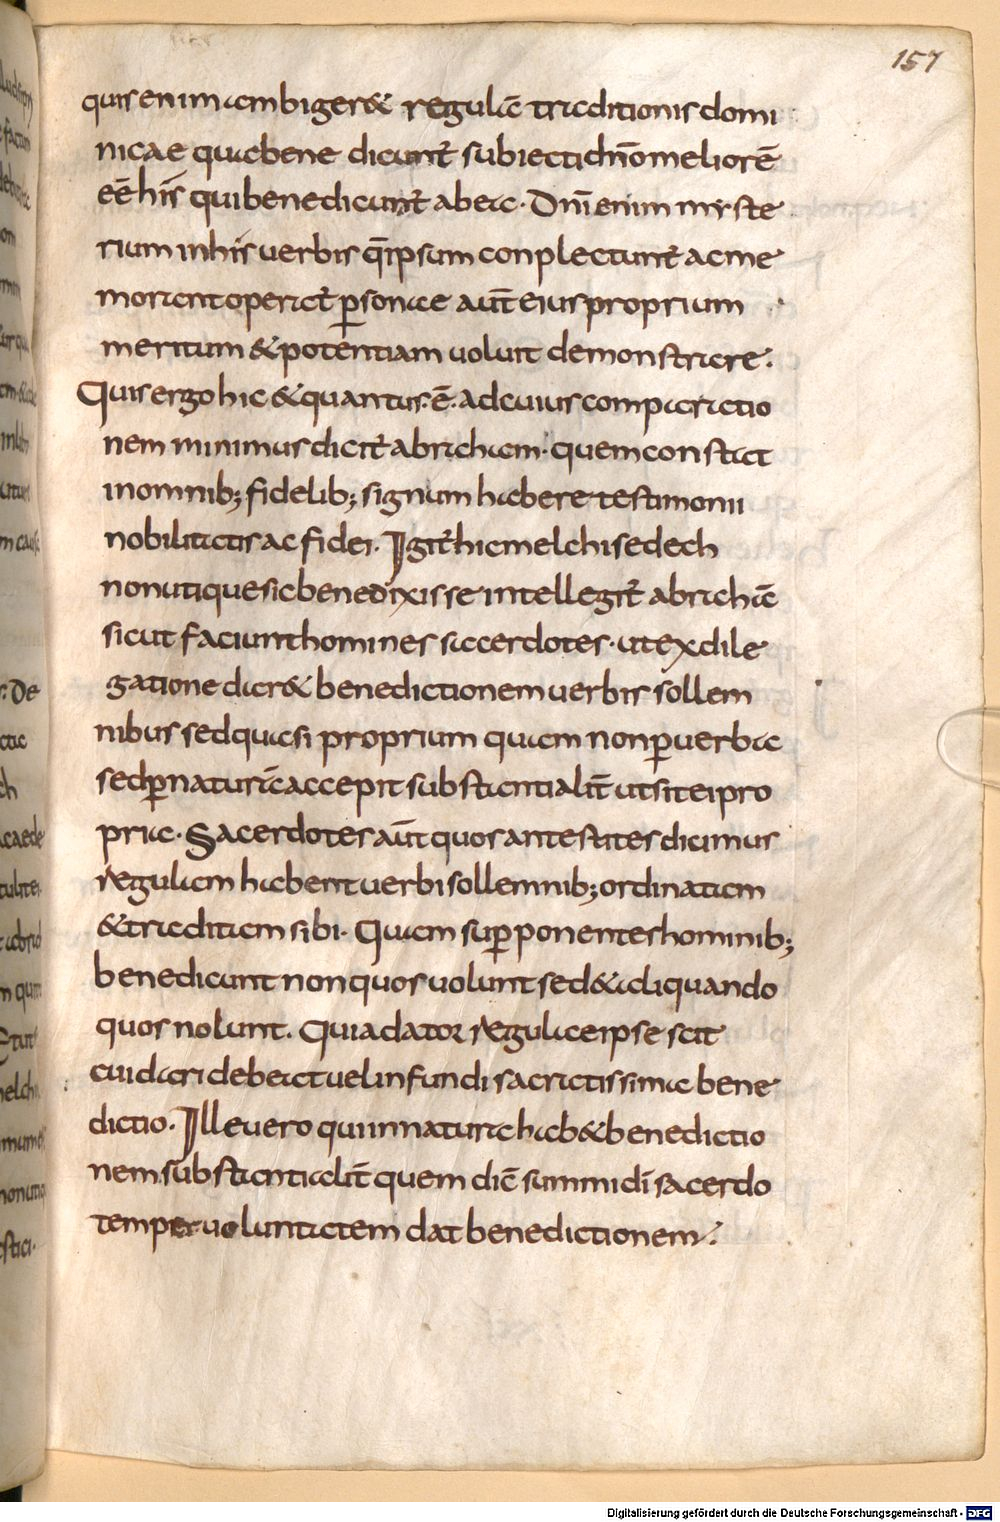 157
quis enim ambiger& regulā traditionis domi
nicae quabene dicunt̄ subiecti dn̄o meliorē
eē his̄ qui benedicunt̄ abeic· Dn̄i enim myste
rium in his verbis q̄ ipsum conplectunt̄ ac me
morant operat̄ p̲sonae aut̄ eius proprium
meritum & potentiam uoluit demonstrare·
Quis ergo hic & quantus· ē· ad cuius comparatio
nem minimus dicit̄ abraham· quem constat
in omnib; fidelib; signum habere testimonii
nobilitatis ac fidei· Igit̄ hic melchisedech
non utique sic benedixisse intellegit̄ abrahā
sicut faciunt homines sacerdotes· ut ex dile
gatione dar& benedictionem uerbis sollem
nibus sed quasi proprium quam non p̲ uerba
sed p̲ naturā accepit substantialit̄ ut sit ei pro
pria· Sacerdotes aut̄ quos antestites dicimus
regulam habent uerbi sollemnib; ordinatam
& traditam sibi· Quam sup̲ponentes hominib;
benedicunt non quos uolunt sed & aliquando
quos nolunt. Quia dator regulae ipse scit
cui dari debeat uel infundi sacratissima bene
dictio· Ille uero qui in natura hab& benedictio
nem substantialit̄ quem dic̄ summi dī sacerdo
tem per uoluntatem dat benedictionem·
Digitalisierung gefördert durch die Deutsche Forschungsgemeinschaft - DFG